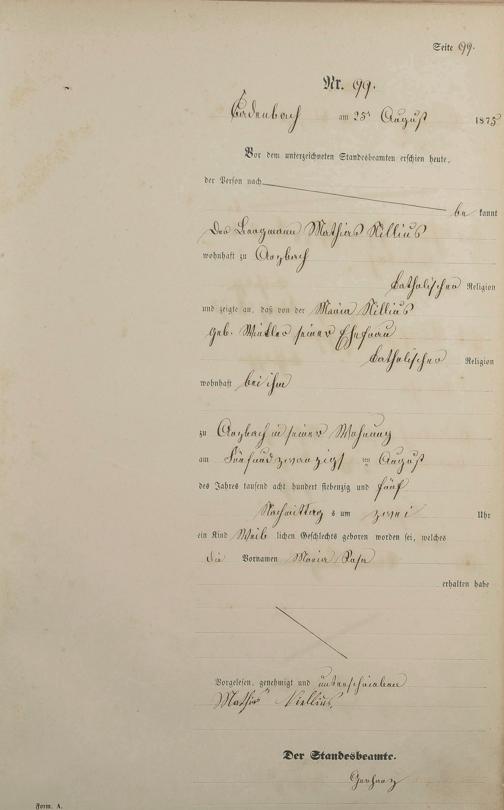 Seite 99.
Nr. 99.
am 25t August 1875
Vor dem unterzeichneten Standesbeamten erschien heute,
der Person nach
be kannt
Der Bergmann Mathias Nillius
wohnhaft zu Arzbach
katholischer Religion
und zeigte an, daß von der Maria Nillius
geb. seiner Ehefrau
katholischer Religion
wohnhaft bei ihm
zu Arzbach in seiner Wohnung
am fünfundzwanzigst en August
des Jahres tausend acht hundert siebenzig und fünf
Nachmittag s um zwei Uhr
ein Kind Weib lichen Geschlechts geboren worden sei, welches
die Vornamen Maria
erhalten habe
Vorgelesen, genehmigt und unterschrieben
Mathias Nillius.
Der Standesbeamte.
Form. A.